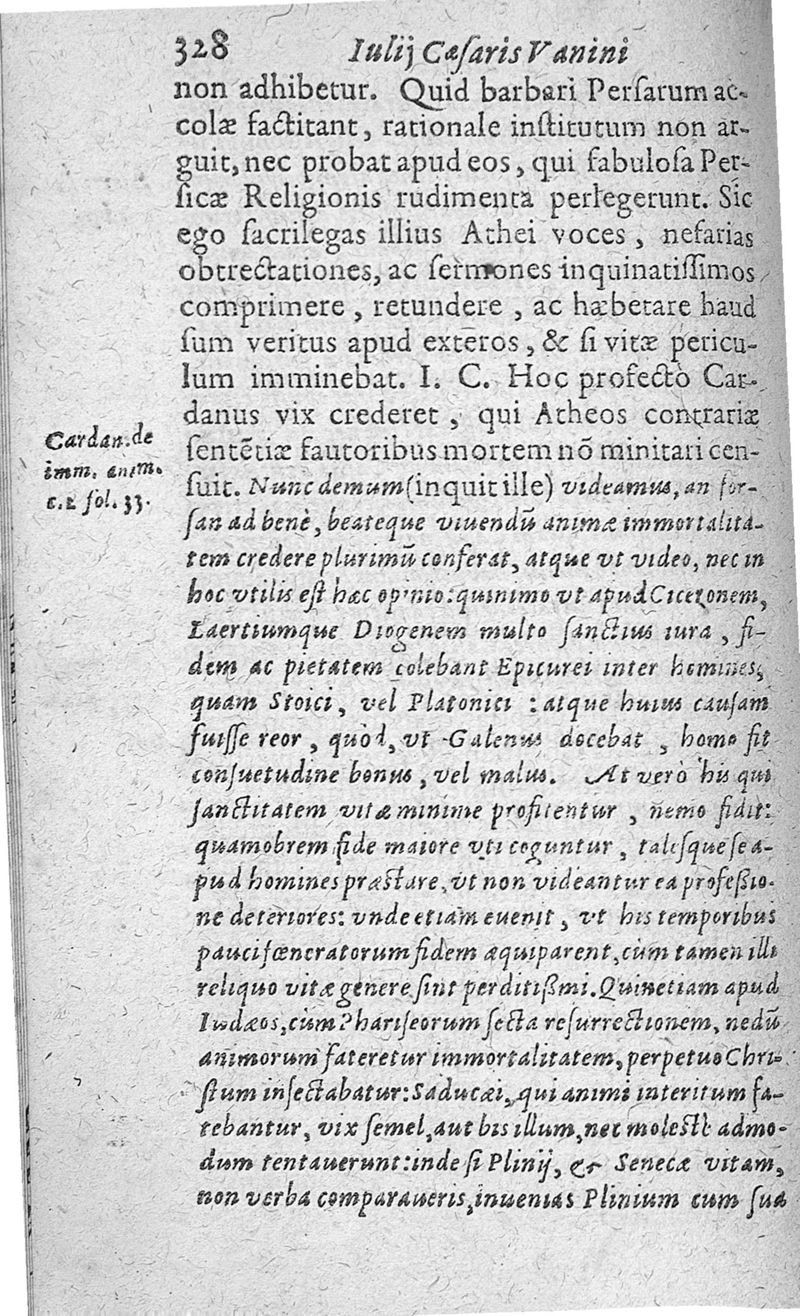 328 Iulij Cæſaris Vanini
non adhibetur. Quid barbari Perſarum ac-
colæ factitant, rationale inſtitutum non ar-
guit, nec probat apud eos, qui fabuloſa Per-
ſicæ Religionis rudimenta perlegerunt. Sic
ego ſacrilegas illius Athei voces, nefarias
obtrectationes, ac ſermones inquinatiſſimos
comprimere, retundere, ac hæbetare haud
ſum veritus apud exteros, & ſi vitæ pericu-
lum imminebat. I. C. Hoc profectò Car-
danus vix crederet, qui Atheos contrariæ
ſentẽtiæ fautoribus mortem nõ minitari cen-
ſuit. Nunc demum (inquit ille) videamus, an for-
ſan ad benè, beateque viuendũ animæ immortalita-
tem credere plurimũ conferat, atque vt video, nec in
hoc vtilis eſt hæc opinio: quinimo vt apud Ciceronem,
Laertiumque Diogenem multo ſanctius iura, fi-
dem ac pietatem colebant Epicurei inter homines,
quam Stoici, vel Platonici: atque huius cauſam
fuiſſe reor, quòd, vt Galenus docebat, homo fit
conſuetudine bonus, vel malus. At verò his qui
ſanctitatem vitæ minime profitentur, nemo fidit:
quamobrem fide maiore vti coguntur, taleſque ſe a-
pud homines præſtare, vt non videantur ea profeßio-
ne deteriores: vnde etiam euenit, vt his temporibus
pauci fœneratorum fidem æquiparent, cùm tamen illi
reliquo vitæ genere ſint perditißimi. Quinetiam apud
Iudæos, cùm Phariſeorum ſecta reſurrectionem, nedũ
animorum fateretur immortalitatem, perpetuo Chri-
ſtum inſectabatur: Saducæi, qui animi interitum fa-
tebantur, vix ſemel, aut bis illum, nec moleſtè admo-
dum tentauerunt: inde ſi Plinij, & Senecæ vitam,
non verba comparaueris, inuenias Plinium cum ſua
Cardan. de
imm. anim.
c. 2 fol. 33.